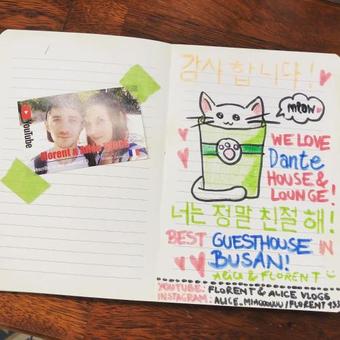 YouTube
감사합니다!
meow
WE LOVE
Dante
HOUSE &
LOUNGE!
너는 정말 친절해!
BEST GUESTHOUSE IN
BUSAN!
ALICE & FLORENT
YOUTUBE: FLORENT & ALICE VLOGS
INSTAGRAM: